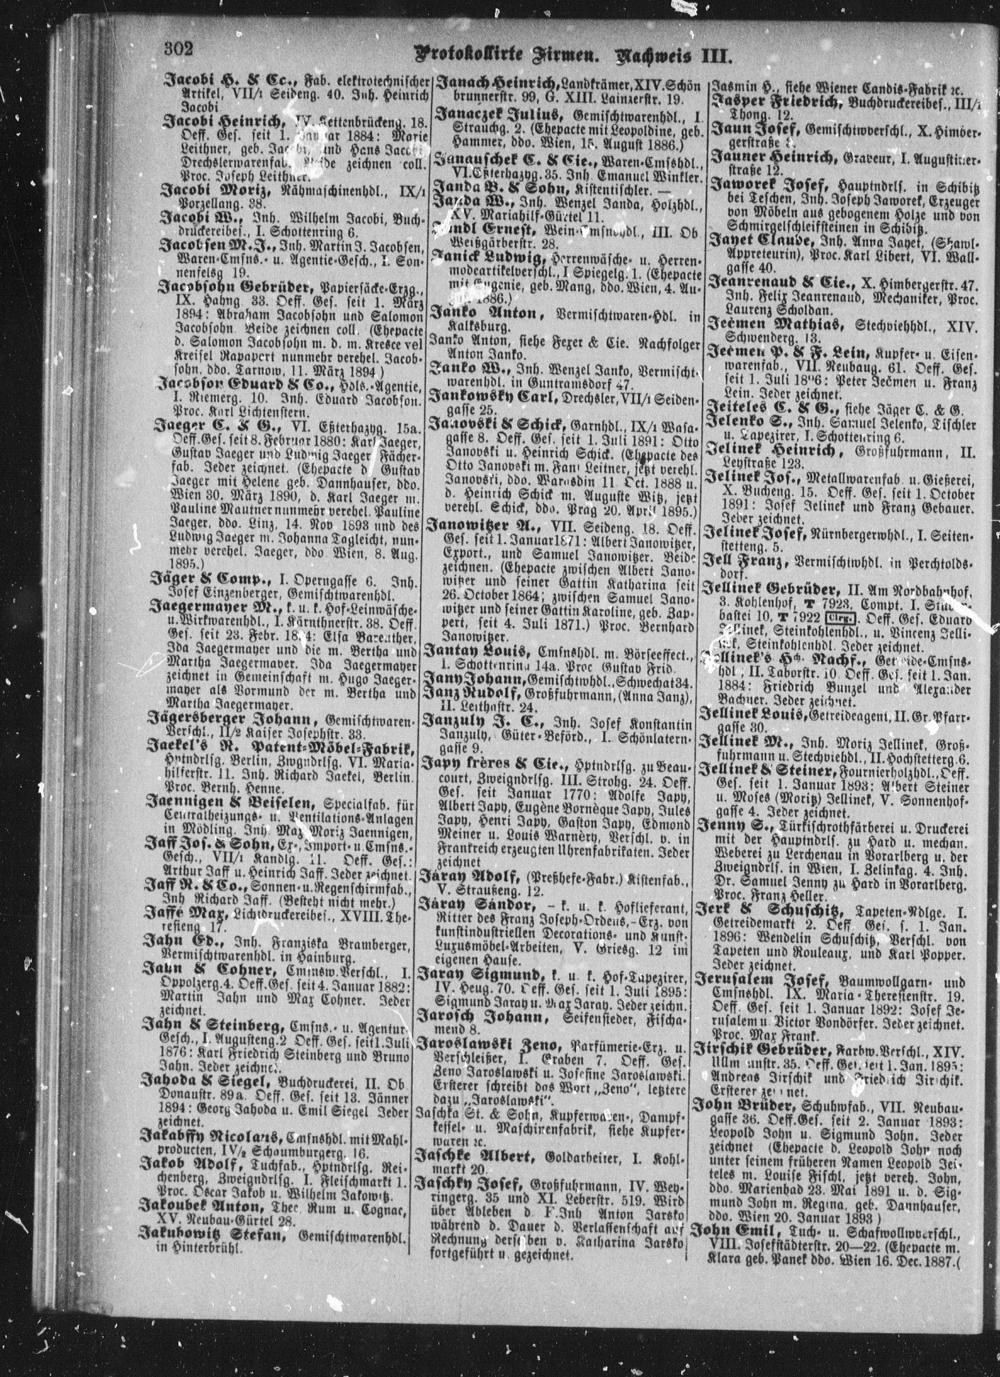 302
Protokollirte Firmen. Nachweis III.
Jacobi H. & Co., Fab. elektrotechnischer
Artikel, VII/1 Seideng. 40. Inh. Heinrich
Jacobi
Jacobi Heinrich, IV. Kettenbrückeng. 18.
Oeff. Ges. seit 1. Januar 1884: Marie
Leithner, geb. Jacobi, und Hans Jacobi
Drechslerwarenfab. Beide zeichnen coll.
Proc. Joseph Leithner.
Jacobi Moriz, Nähmaschinenhdl., IX/1
Porzellang. 38.
Jacobi W., Inh. Wilhelm Jacobi, Buch-
druckereibes., I. Schottenring 6.
Jacobsen M. J., Inh. Martin J. Jacobsen,
Waren-Cmsns.- u. Agentie-Gesch., I. Son-
nenfelsg 19.
Jacobsohn Gebrüder, Papiersäcke-Erzg.,
IX. Hahng 33. Oeff. Ges. seit 1. März
1894: Abraham Jacobsohn und Salomon
Jacobsohn. Beide zeichnen coll. (Ehepacte
d. Salomon Jacobsohn m. d. m. Kresce vel
Kreisel Rapaport nunmehr verehel. Jacob-
sohn. ddo. Tarnow, 11. März 1894)
Jacobson Eduard & Co., Holz-Agentie,
I. Riemerg. 10. Inh. Eduard Jacobson.
Proc. Karl Lichtenstern.
Jaeger C. & G., VI. Eßterhazyg. 15a.
Oeff. Ges. seit 8. Februar 1880: Karl Jaeger,
Gustav Jaeger und Ludwig Jaeger Fächer-
fab. Jeder zeichnet. (Ehepacte d Gustav
Jaeger mit Helene geb. Dannhauser, ddo.
Wien 30. März 1890, d. Karl Jaeger m.
Pauline Mautner nunmehr verehel. Pauline
Jaeger, ddo. Linz, 14. Nov 1893 und des
Ludwig Jaeger m. Johanna Tagleicht, nun-
mehr verehel. Jaeger, ddo Wien, 8. Aug.
1895.)
Jäger & Comp., I. Operngasse 6. Inh.
Josef Einzenberger, Gemischtwarenhdl.
Jaegermayer M., k. u. k. Hof-Leinwäsche-
u. Wirkwarenhdl., I. Kärnthnerstr. 38. Oeff.
Ges. seit 23. Febr. Elsa Bareuther,
Ida Jaegermayer und die m. Bertha und
Martha Jaegermayer. Ida Jaegermayer
zeichnet in Gemeinschaft m. Hugo Jaeger-
mayer als Vormund der m. Bertha und
Martha Jaegermayer.
Jägersberger Johann, Gemischtwaren-
Verschl., II/2 Kaiser Josephstr. 33.
Jaekel's R. Patent-Möbel-Fabrik,
Hptndrlsg. Berlin, Zwgndrlsg. VI. Maria-
hilferstr. 11. Inh. Richard Jaekel, Berlin
Proc. Bernh. Henne.
Jaennigen & Beiselen, Specialfab. für
Centralheizungs- u. Ventilations-Anlagen
in Mödling. Inh. Max Moriz Jaennigen,
Jaff Jos. & Sohn, Ex-, Import- u. Cmsns.-
Gesch., VII/1 Kandlg. 11. Oeff. Ges.:
Arthur Jaff u. Heinrich Jaff. Jeder zeichnet.
Jaff R. & Co., Sonnen- u. Regenschirmfab.,
Inh Richard Jaff. (Besteht nicht mehr.)
Jaffé Max, Lichtdruckereibes., XVIII. The-
resieng 17.
Jahn Ed., Inh. Franziska Bramberger,
Vermischtwarenhdl. in Hainburg.
Jaun & Cohner, Cmsnsw. Verschl., I.
Oppolzerg. 4. Oeff. Ges. seit 4. Januar 1882:
Martin Jahn und Max Cohner. Jeder
zeichnet.
Jahn & Steinberg, Cmsns.- u. Agentur-
Gesch., I. Augusteng. 2 Oeff. Ges. seit 1. Juli
1876: Karl Friedrich Steinberg und Bruno
Jahn. Jeder zeichnet.
Jahoda & Siegel, Buchdruckerei, II. Ob
Donaustr. 89a. Oeff. Ges. seit 13. Jänner
1894: Georg Jahoda u. Emil Siegel Jeder
zeichnet.
Jakabffy Nicolaus, Cmsnshdl. mit Mahl-
producten, IV/2 Schaumburgerg. 16.
Jakob Adolf, Tuchfab., Hptndrlsg. Rei-
chenberg, Zweigndrlsg. I. Fleischmarkt 1.
Proc. Oscar Jakob u. Wilhelm Jakowitz.
Jakoubek Anton, Thee Rum u. Cognac,
XV. Neubau-Gürtel 28.
Jakubowitz Stefan, Gemischtwarenhdl.
in Hinterbrühl.
Janach Heinrich, Landkrämer, XIV. Schön
brunnerstr. 99, G. XIII. Lainzerstr. 19.
Janaczek Julius, Gemischtwarenhdl., I
Strauchg. 2. (Ehepacte mit Leopoldine, geb.
Hammer, ddo. Wien, 15. August 1886.)
Janauschek C. & Cie., Waren-Cmsshdl.,
VI. Eßterhazyg. 35. Inh. Emanuel Winkler.
Janda B. & Sohn, Kistentischler. —
Janda W., Inh. Wenzel Janda, Holzhdl.,
XV. Mariahilf-Gürtel 11.
Jandl Ernest, Wein-Cmsnshdl., III. Ob
Weißgärberstr. 28.
Janick Ludwig, Herrenwäsche- u. Herren-
modeartikelverschl., I Spiegelg. 1. (Ehepacte
mit Eugenie, geb. Mang, ddo. Wien, 4. Au-
1886.)
Janko Anton, Vermischtwaren-Hdl. in
Kalksburg.
Janko Anton, siehe Fexer & Cie. Nachfolger
Anton Janko.
Janko W., Inh. Wenzel Janko, Vermischt-
warenhdl. in Guntramsdorf 47.
Jankowsky Carl, Drechsler, VII/1 Seiden-
gasse 25.
Janovski & Schick, Garnhdl., IX/1 Wasa-
gasse 8. Oeff. Ges. seit 1. Juli 1891: Otto
Janovski u. Heinrich Schick. (Ehepacte des
Otto Janovski m. Fany Leitner, jetzt verehl.
Janovski, ddo Warasdin 11. Oct. 1888 u.
d. Heinrich Schick m. Auguste Witz, jetzt
verehl. Schick, ddo. Prag 20. April 1895.)
Janowitzer A., VII. Seideng. 18. Oeff.
Ges. seit 1. Januar 1871: Albert Janowitzer,
Export., und Samuel Janowitzer. Beide
zeichnen. (Ehepacte zwischen Albert Jano-
witzer und seiner Gattin Katharina seit
26. October 1864; zwischen Samuel Jano-
witzer und seiner Gattin Karoline, geb. Zap-
pert, seit 4. Juli 1871.) Proc. Bernhard
Janowitzer.
Jantay Louis, Cmsnshdl. m. Börseeffect.,
I. Schottenring 14a. Proc Gustav Frid.
Jany Johann, Gemischtwhdl., Schwechat 34.
Janz Rudolf, Großfuhrmann, (Anna Janz),
II. Leithastr. 24.
Janzuly J. C., Inh. Josef Konstantin
Janzuly, Güter-Beförd., I. Schönlatern-
gasse 9.
Japy frères & Cie., Hptndrlsg. zu Beau-
court, Zweigndrlsg. III. Strohg. 24. Oeff.
Ges. seit Januar 1770: Adolfe Japy,
Albert Japy, Eugène Bornèque Japy, Jules
Japy, Henri Japy, Gaston Japy, Edmond
Meiner u. Louis Warnèry, Verschl. v. in
Frankreich erzeugten Uhrenfabrikaten. Jeder
zeichnet
Járay Adolf, (Preßhefe-Fabr.) Kistenfab.,
V. Straußeng. 12.
Járay Sándor, – k. u. k. Hoflieferant,
Ritter des Franz Joseph-Ordens,- Erz. von
kunstindustriellen Decorations- und Kunst-
Luxusmöbel-Arbeiten, V. Griesg. 12 im
eigenen Hause.
Jaray Sigmund, k. u. k. Hof-Tapezirer,
IV. Heug. 70. Oeff. Ges. seit 1. Juli 1895:
Sigmund Jaray u. Max Jaray. Jeder zeichn.
Jarosch Johann, Seifensieder, Fischa-
mend 8.
Jaroslawski Zeno, Parfümerie-Erz. u.
Verschleißer, I. Graben 7. Oeff. Ges.
Zeno Jaroslawski u. Josefine Jaroslawski.
Ersterer schreibt das Wort „Zeno", letztere
dazu „Jaroslawski".
Jaschka St. & Sohn, Kupferwaren, Dampf-
kessel- u. Maschinenfabrik, siehe Kupfer-
waren ꝛc.
Jaschke Albert, Goldarbeiter, I. Kohl-
markt 20.
Jaschky Josef, Großfuhrmann, IV. Wey-
ringerg. 35 und XI. Leberstr. 519. Wird
über Ableben d. F. Inh Anton Jarsko
während d. Dauer d. Verlassenschaft auf
Rechnung derselben v. Katharina Jarsko
fortgeführt u. gezeichnet.
Jasmin H., siehe Wiener Candis-Fabrik ꝛc.
Jasper Friedrich, Buchdruckereibes., III/1
Thong. 12.
Jaun Josef, Gemischtwverschl., X. Himber-
gerstraße
Jauner Heinrich, Graveur, I. Augustiner-
straße 12.
Jaworek Josef, Hauptndrls. in Schibitz
bei Teschen, Inh. Joseph Jaworek, Erzeuger
von Möbeln aus gebogenem Holze und von
Schmirgelschleifsteinen in Schibitz.
Jayet Claude, Inh. Anna Jayet, (Shawl-
Appreteurin), Proc. Karl Libert, VI. Wall-
gasse 40.
Jeanrenaud & Cie., X. Himbergerstr. 47.
Inh. Felix Jeanrenaud, Mechaniker, Proc.
Laurenz Scholdan.
Ječmen Mathias, Stechviehhdl., XIV.
Schwenderg. 13.
Ječmen P. & F. Lein, Kupfer- u. Eisen-
warenfab., VII. Neubaug. 61. Oeff. Ges.
seit 1. Juli Peter Ječmen u. Franz
Lein. Jeder zeichnet.
Jeiteles C. & G., siehe Jäger C. & G.
Jelenko S., Inh. Samuel Jelenko, Tischler
u. Tapezirer, I. Schottenring 6.
Jelinek Heinrich, Großfuhrmann, II.
Leystraße 123.
Jelinek Jos., Metallwarenfab. u. Gießerei,
X. Bucheng. 15. Oeff. Ges. seit 1. October
1891: Josef Jelinek und Franz Gebauer.
Jeder zeichnet.
Jelinek Josef, Nürnbergerwhdl., I. Seiten-
stetteng. 5.
Jell Franz, Vermischtwhdl. in Perchtolds-
dorf.
Jellinek Gebrüder, II. Am Nordbahnhof,
3. Kohlenhof, T 7923, Compt. I.
bastei 10, T 7922 Clrg. Oeff. Ges. Eduard
Jellinek, Steinkohlenhdl. u. Vincenz Jelli-
nek, Steinkohlenhdl. Jeder zeichnet.
Jellinek's Hch. Nachf., Getreide-Cmsns-
hdl, II. Taborstr. 10. Oeff. Ges. seit 1. Jan.
1884: Friedrich Bunzel und Alexander
Bachner. Jeder zeichnet.
Jellinek Louis, Getreideagent, II. Gr. Pfarr-
gasse 30.
Jellinek M., Inh. Moriz Jellinek, Groß-
fuhrmann u. Stechviehdl., II. Hochstetterg. 6.
Jellinek & Steiner, Fournierholzhdl., Oeff.
Ges. seit 1. Januar 1893: Albert Steiner
u. Moses (Moritz) Jellinek, V. Sonnenhof-
gasse 4. Jeder zeichnet.
Jenny S., Türkischrothfärberei u. Druckerei
mit der Hauptndrls. zu Hard u. mechan.
Weberei zu Lerchenau in Vorarlberg u. der
Zweigndrls. in Wien, I. Zelinkag. 4. Inh.
Dr. Samuel Jenny zu Hard in Vorarlberg.
Proc. Franz Heller.
Jerk & Schuschitz, Tapeten-Ndlge. I.
Getreidemarkt 2. Oeff Ges. s. 1. Jan.
1896: Wendelin Schuschitz, Verschl. von
Tapeten und Rouleaux, und Karl Popper.
Jeder zeichnet.
Jerusalem Josef, Baumwollgarn- und
Cmsnshdl. IX. Maria-Theresienstr. 19.
Oeff. Ges. seit 1. Januar 1892: Josef Je-
rusalem u. Victor Bondörfer. Jeder zeichnet.
Proc. Max Frank.
Jirschik Gebrüder, Farbw. Verschl., XIV.
Ullmannstr. 35. Oeff. Ges. seit 1. Jan. 1895:
Andreas Jirschik und Friedrich Jirschik.
Ersterer zeichnet.
John Brüder, Schuhwfab., VII. Neubau-
gasse 36. Oeff. Ges. seit 2. Januar 1893:
Leopold John u. Sigmund John. Jeder
zeichnet (Ehepacte d. Leopold John noch
unter seinem früheren Namen Leopold Jei-
teles m. Louise Fischl, jetzt vereh. John,
ddo. Marienbad 23. Mai 1891 u. d. Sig-
mund John m. Regina, geb. Dannhauser,
ddo. Wien 20. Januar 1893)
John Emil, Tuch- u. Schafwollwverschl.,
VIII. Josefstädterstr. 20—22. (Ehepacte m.
Klara geb. Panek ddo. Wien 16. Dec. 1887.(